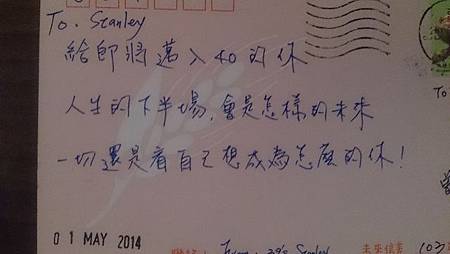 To. Stanley
給即將邁入40的你
人生的下半場,會是怎樣的未來
一切還是看自己想成為怎麼的你!
To
01 MAY 2014
Stanley
未來信寄
(103)